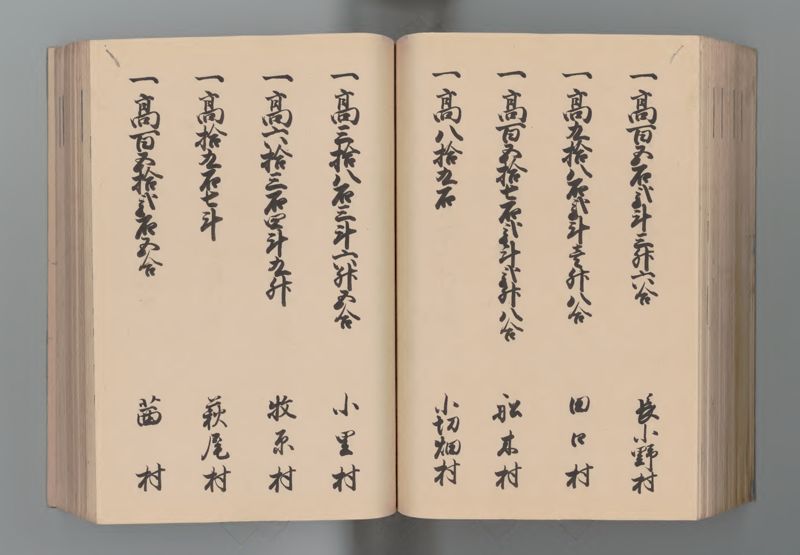 一高百五石弐斗三升六合 長小野村
一高九拾八石弐斗壱升八合 田口村
一高百五拾七石弐斗弐升八合 舩木村
一高八拾九石 小切畑村
一高三拾八石三斗六升五合 小里村
一高六拾三石四斗九升 牧原村
一高拾九石七斗 萩尾村
一高百五拾弐石五合 茜村